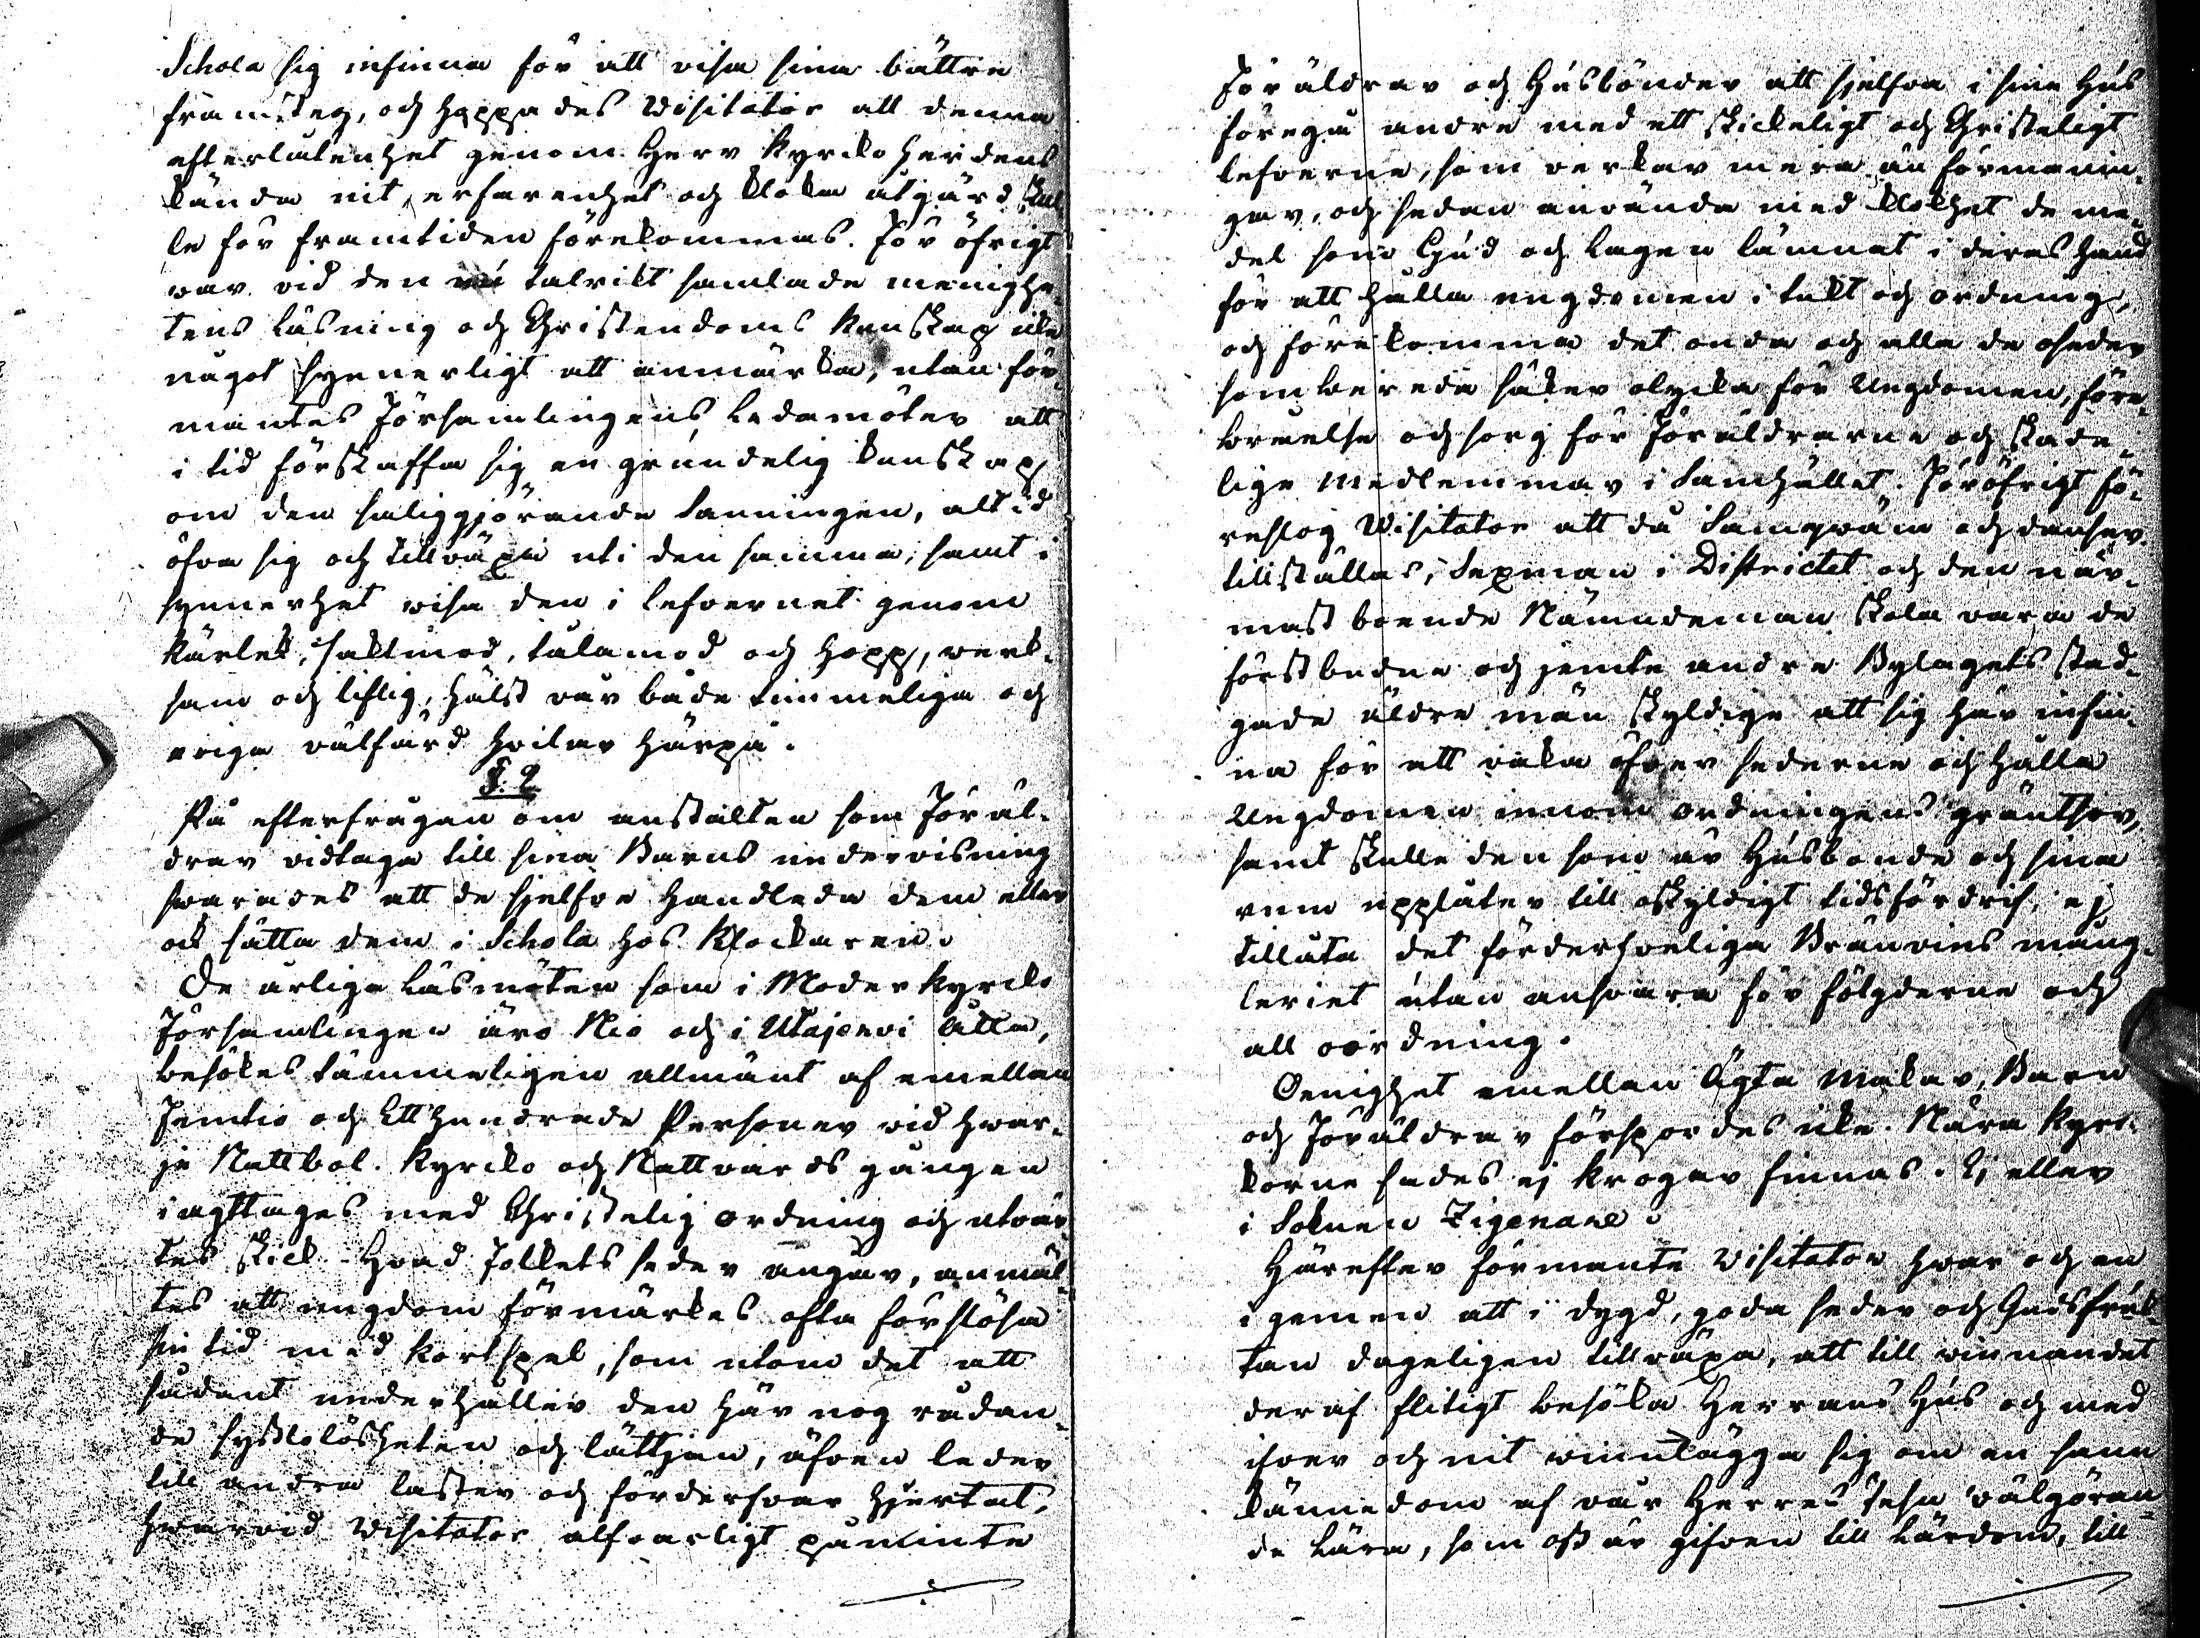 Schola sig infinna för att visa sina bättre
framsteg, och hoppades Visitator att denna
efterlåtenhet genom Herr Kyrckoherdens
kända nit, erfarenhet och kloka åtgärd skul
le för framtiden förekommas. För öfrigt
var vid den nu talrikt samlade menighe-
tens läsning och Christendoms kunskap icke
något synnerligt att anmärka, utan för-
mantes Församlingens Ledamöter att
i tid förskaffa sig en grundelig kunskap
om den saliggjörande Sanningen, altid
öfva sig och tillväxa uti den samma, samt i
synnerhet visa den i lefvernet genom
kärlek, saktmod, tålamod och hopp, verk-
sam och liflig, hälst vår både timmeliga och
eviga välfärd hvilar härpå.
§. 2
På efterfrågan om anstalten som Föräl-
drar vidtaga till sina Barns undervisning
svarades att de sjelfve handleda dem eller
ock sätta dem i Schola hos Klockaren.
De årliga Läsmöten som i Moderkyrcko
Församlingen äro Nio och i Utajervi Åtta,
besökes tämmeligen allmänt af emellan
Femtio och Etthundrade Personer vid hvar-
je Nattbol. Kyrcko och Nattvards gången
iagttages med Christelig ordning och utvär-
tes skick. Hvad Folkets seder angår, anmäl-
tes att ungdom förmärkes ofta förslösa
sin tid med kortspel, som utom det att
sådant underhåller den här nog rådan-
de sysslolösheten och lättjan, äfven leder
till andra laster och förderfvar hjertat,
hvarvid Visitator alfvarligt påminte
Föräldrar och Husbönder att sjelfva i sine hus
föregå andre med ett skickeligt och Christeligt
lefverne, som verkar mera än förmanin-
gar, och sedan använda med klokhet de me-
del som Gud och Lagen lämnat i deras hand
för att hålla ungdomen i tukt och ordning,
och förekomma det onda och alla de oseder
som bereda säker olycka för Ungdomen, före-
bråelse och sorg för Föräldrarne och skade-
lige Medlemmar i Samhället. Föröfrigt fö-
reslog Visitator att då Samqväm och danser
tillställas, Sexman i Districtet och den när-
mast boende Nämndeman skola vara de
förstbudne och jemte andre Bylagets stad-
gade äldre män skyldige att sig här infin-
na för att vaka öfver sederne och hålla
Ungdomen innom ordningens gräntsor,
samt skulle den som är Husbonde och sina
rum upplåter till oskyldigt tidsfördrif, ej
tillåta det förderfveliga Bränvins mång-
leriet utan ansvara för följderne och
all oordning.
Oenighet emellan Ägta Makar, Barn
och Föräldrar förspordes icke. Nära Kyrc-
korne sades ej krogar finnas. Ej eller
i Soknen Zigenare.
Härefter förmante Visitator hvar och en
i gemen att i dygd, goda seder och Gudsfruk-
tan dageligen tillväxa, att till vinnandet
deraf flitigt besöka Herrans Hus och med
ifver och nit vinnlägga sig om en sann
kännedom af vår Herres Jesu välgöran-
de Lära, som oss är gifven till Lärdom, till